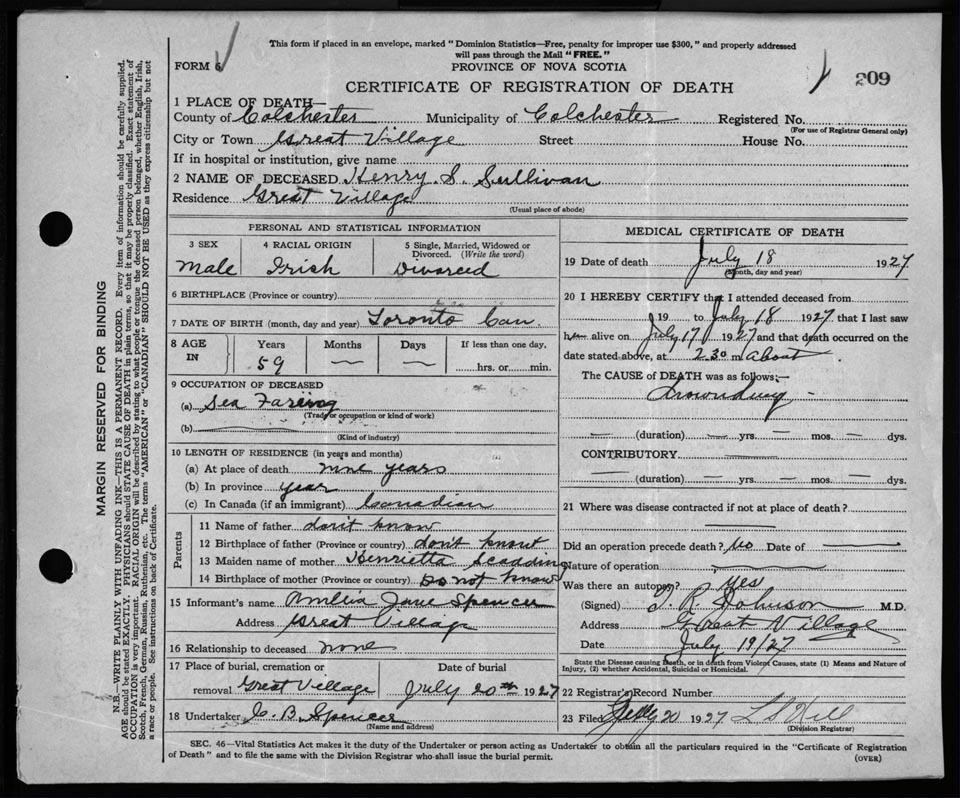 This form if placed in an envelope, marked "Dominion Statistics—Free, penalty for improper use $300," and properly addressed
will pass through the Mail "FREE."
FORM 6
PROVINCE OF NOVA SCOTIA
209
CERTIFICATE OF REGISTRATION OF DEATH
1 PLACE OF DEATH—
County of Colchester Municipality of Colchester Registered No.
(For use of Registrar General only)
City or Town Great Village Street House No.
If in hospital or institution, give name
2 NAME OF DECEASED Henry S. Sullivan
Residence Great Village
(Usual place of abode)
PERSONAL AND STATISTICAL INFORMATION
3 SEX 4 RACIAL ORIGIN 5 Single, Married, Widowed or
Divorced. (Write the word)
Male Irish Divorced
6 BIRTHPLACE (Province or country)
7 DATE OF BIRTH (month, day and year) Toronto Can.
8 AGE IN Years Months Days If less than one day,
59 — — hrs. or min.
9 OCCUPATION OF DECEASED
(a) Sea Faring
(Trade or occupation or kind of work)
(b)
(Kind of industry)
10 LENGTH OF RESIDENCE (in years and months)
(a) At place of death nine years
(b) In province year
(c) In Canada (if an immigrant) Canadian
Parents
11 Name of father don't know
12 Birthplace of father (Province or country) don't know
13 Maiden name of mother Henrietta
14 Birthplace of mother (Province or country) Do not know
15 Informant's name Amelia Jane Spencer
Address Great Village
16 Relationship to deceased none
17 Place of burial, cremation or Date of burial
removal Great Village July 20th 1927
18 Undertaker C. B. Spencer
(Name and address)
MEDICAL CERTIFICATE OF DEATH
19 Date of death July 18 1927
(Month, day and year)
20 I HEREBY CERTIFY that I attended deceased from
19 to July 18 1927 that I last saw
him alive on July 17 1927 and that death occurred on the
date stated above, at 2.30 m About
The CAUSE of DEATH was as follows:—
Drowning
— (duration) — yrs. — mos. — dys.
CONTRIBUTORY
— (duration) — yrs. — mos. — dys.
21 Where was disease contracted if not at place of death?
Did an operation precede death? No Date of
Nature of operation
Was there an autopsy? Yes
(Signed) T. R. Johnson M.D.
Address Great Village
Date July 19/27
State the Disease causing Death, or in death from Violent Causes, state (1) Means and Nature of
Injury, (2) whether Accidental, Suicidal or Homicidal.
22 Registrar's Record Number
23 Filed July 20 1927 L S Hill
(Division Registrar)
SEC. 46—Vital Statistics Act makes it the duty of the Undertaker or person acting as Undertaker to obtain all the particulars required in the "Certificate of Registration
of Death" and to file the same with the Division Registrar who shall issue the burial permit.
(OVER)
MARGIN RESERVED FOR BINDING
N.B.—WRITE PLAINLY WITH UNFADING INK—THIS IS A PERMANENT RECORD. Every item of information should be carefully supplied.
AGE should be stated EXACTLY. PHYSICIANS should STATE CAUSE OF DEATH in plain terms, so that it may be properly classified. Exact statement of
OCCUPATION is very important. RACIAL ORIGIN will be described by stating to what people or tongue the deceased person belonged, whether English, Irish,
Scotch, French, German, Russian, Ruthenian, etc. The terms "AMERICAN" or "CANADIAN" SHOULD NOT BE USED as they express citizenship but not
a race or people. See instructions on back of Certificate.